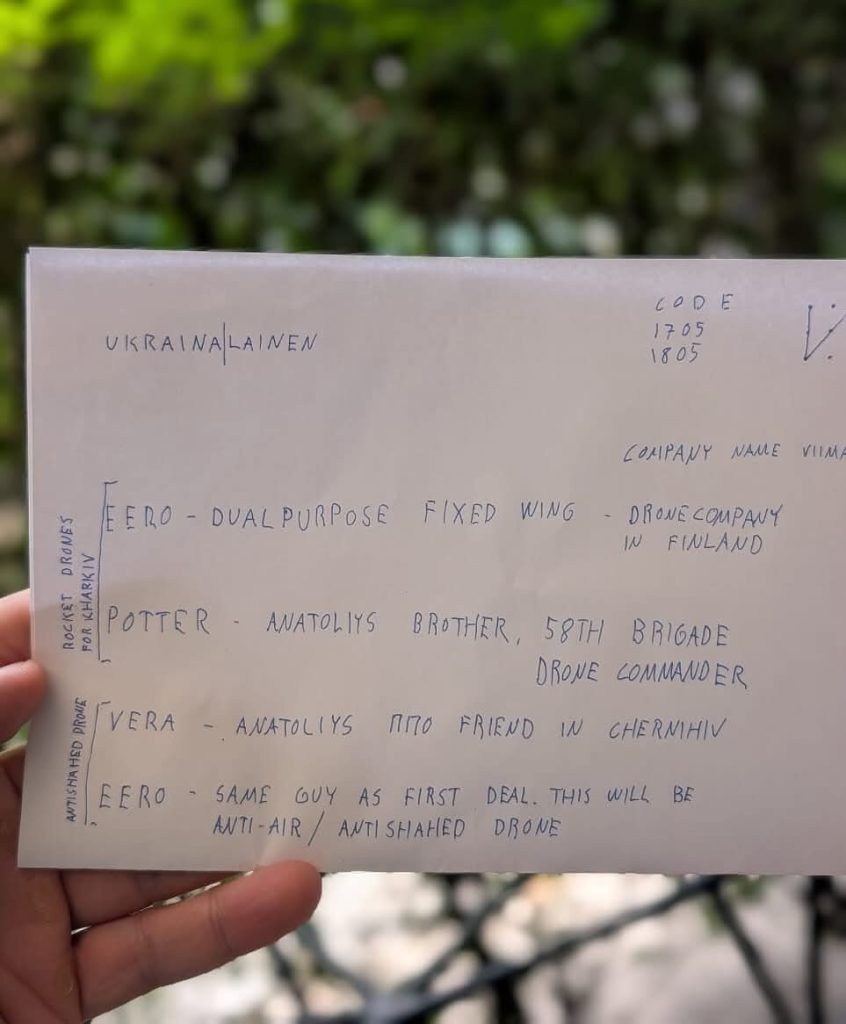 CODE
1705
1805
UKRAINA|LAINEN
COMPANY NAME
EERO - DUAL PURPOSE FIXED WING - DRONECOMPANY
IN FINLAND
ROCKET DRONES
FOR KHARKIV
POTTER - ANATOLIYS BROTHER, 58TH BRIGADE
DRONE COMMANDER
VERA - ANATOLIYS ППО FRIEND IN CHERNIHIV
ANTISHAHED DRONE
EERO - SAME GUY AS FIRST DEAL. THIS WILL BE
ANTI-AIR / ANTISHAHED DRONE